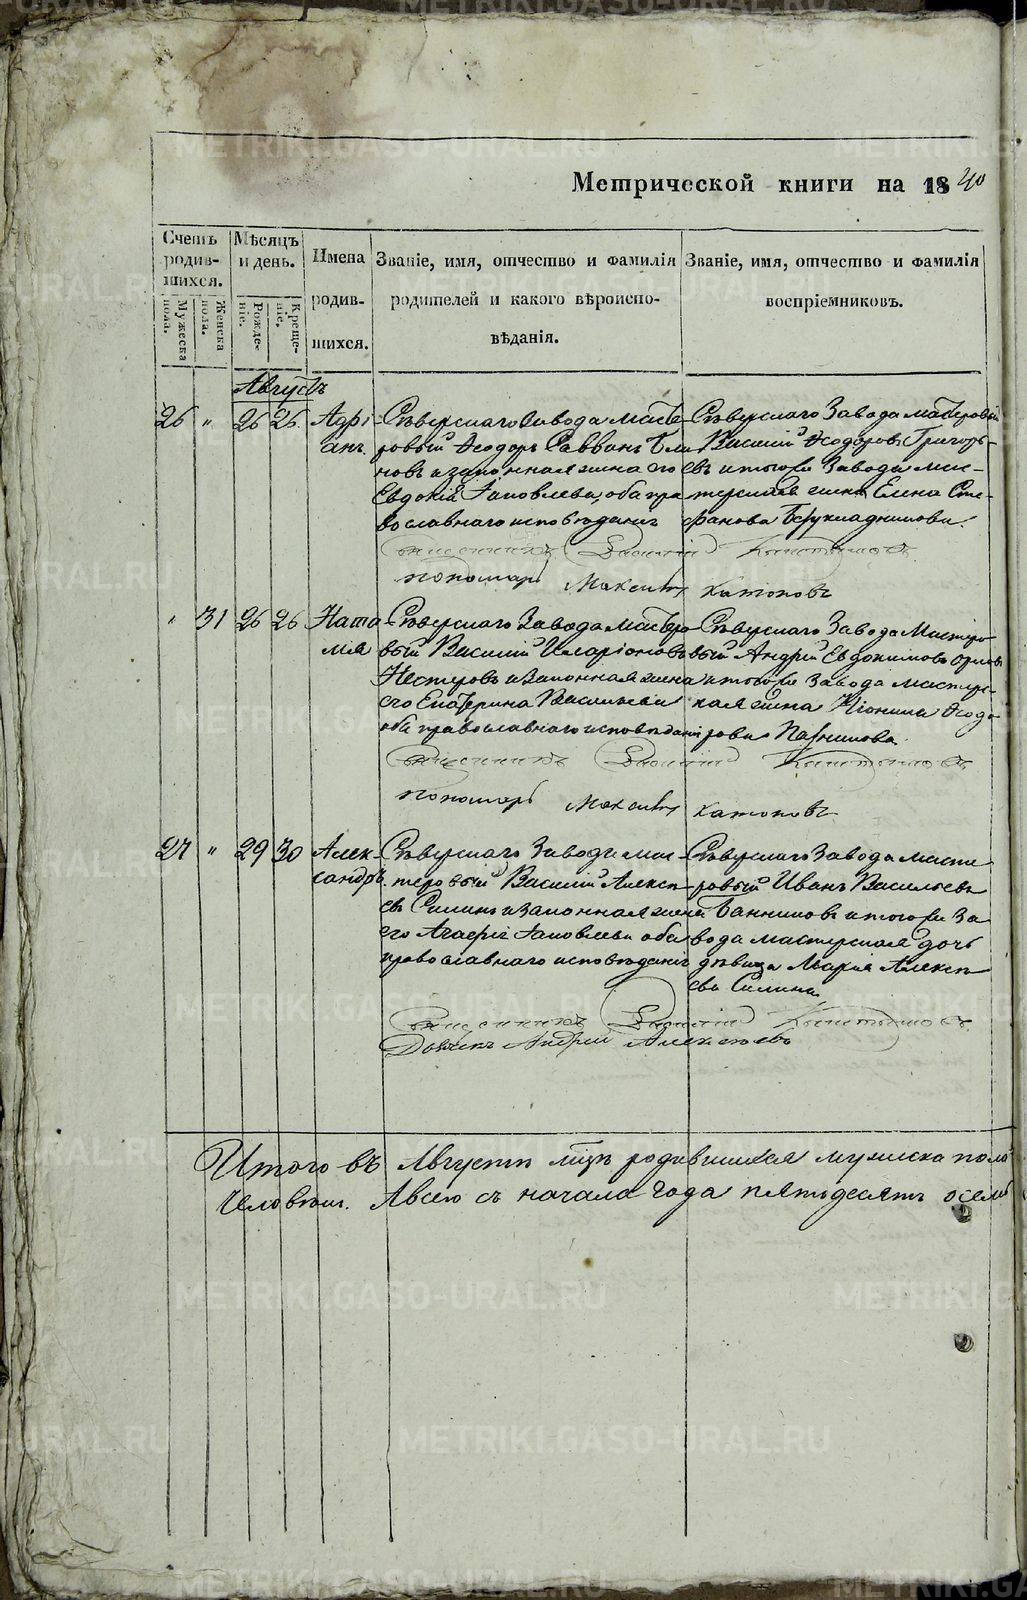 Метрической книги на 1840
Счетъ родив-шихся.
Мужеска пола.
Женска пола.
Мѣсяцъ и день.
Рожде-ніе.
Креще-ніе.
Имена
родив-
шихся.
Званіе, имя, отчество и фамилія
родителей и какого вѣроиспо-
вѣданія.
Званіе, имя, отчество и фамилія
воспріемниковъ.
Августъ
26 " 26 26
Адрі
анъ.
Сѣверскаго завода масте
ровый Ѳеодоръ Саввинъ
новъ и законная жена его
Евдокія Іаковлева, оба пра
вославнаго исповѣданія
Сѣверскаго Завода мастеровый
Василий Ѳеодоровъ Григорь-
евъ и тогоже Завода мас-
терская жена Елена Сте-
фанова
Священникъ Василій
пономарь Максимъ Катоковъ
" 31 26 26
Ната
лія
Сѣверскаго Завода мастеро
вый Василий Иларіоновъ
Нестеровъ и законная жена
его Екатерина Васильева
оба православнаго исповѣданія
Сѣверскаго Завода Мастеро
вый Андрей Евдокимовъ Орловъ
и тогоже Завода мастерс-
кая жена Ѳеодо
рова
Священникъ Василій
пономарь Максимъ Катоковъ
27 " 29 30
Алек-
сандръ.
Сѣверскаго Завода мас-
теровый Василій Алексѣ
евъ Силинъ и законная жена
его Іаковлева оба
православнаго исповѣданія
Сѣверскаго Завода масте
ровый Иванъ Васильевъ
Банниковъ и тогоже За
вода мастерская дочь
дѣвица Марія Алексѣ
ева Силина
Священникъ Василій
Андрей Алексѣевъ
Итого въ Августѣ мцѣ родившихся мужеска пола
Человѣкъ. А всего съ начала года пятьдесятъ осемь
METRIKI.GASO-URAL.RU